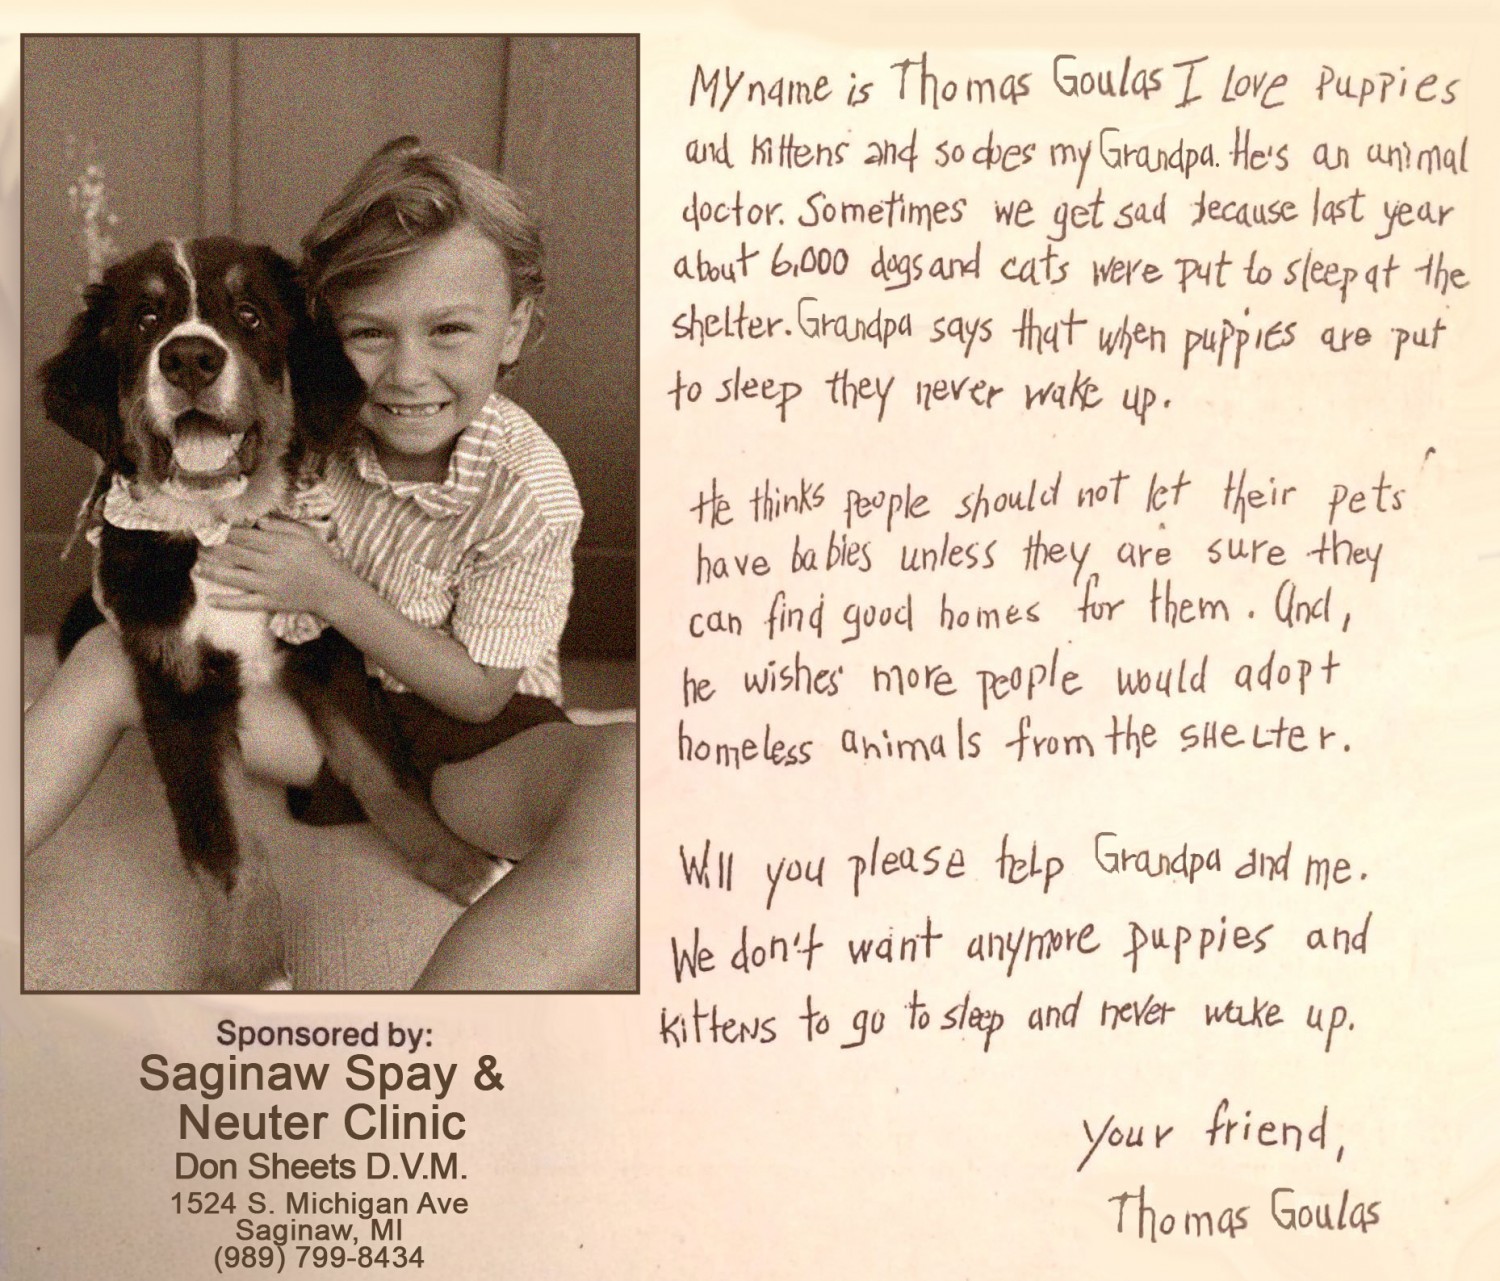 My name is Thomas Goulas I Love Puppies
and kittens and so does my Grandpa. He's an animal
doctor. Sometimes we get sad because last year
about 6,000 dogs and cats were put to sleep at the
shelter. Grandpa says that when puppies are put
to sleep they never wake up.
He thinks people should not let their pets
have babies unless they are sure they
can find good homes for them. And,
he wishes more people would adopt
homeless animals from the SHELTer.
Will you please help Grandpa and me.
We don't want anymore puppies and
kittens to go to sleep and never wake up.
Your friend,
Thomas Goulas
Sponsored by:
Saginaw Spay &
Neuter Clinic
Don Sheets D.V.M.
1524 S. Michigan Ave
Saginaw, MI
(989) 799-8434